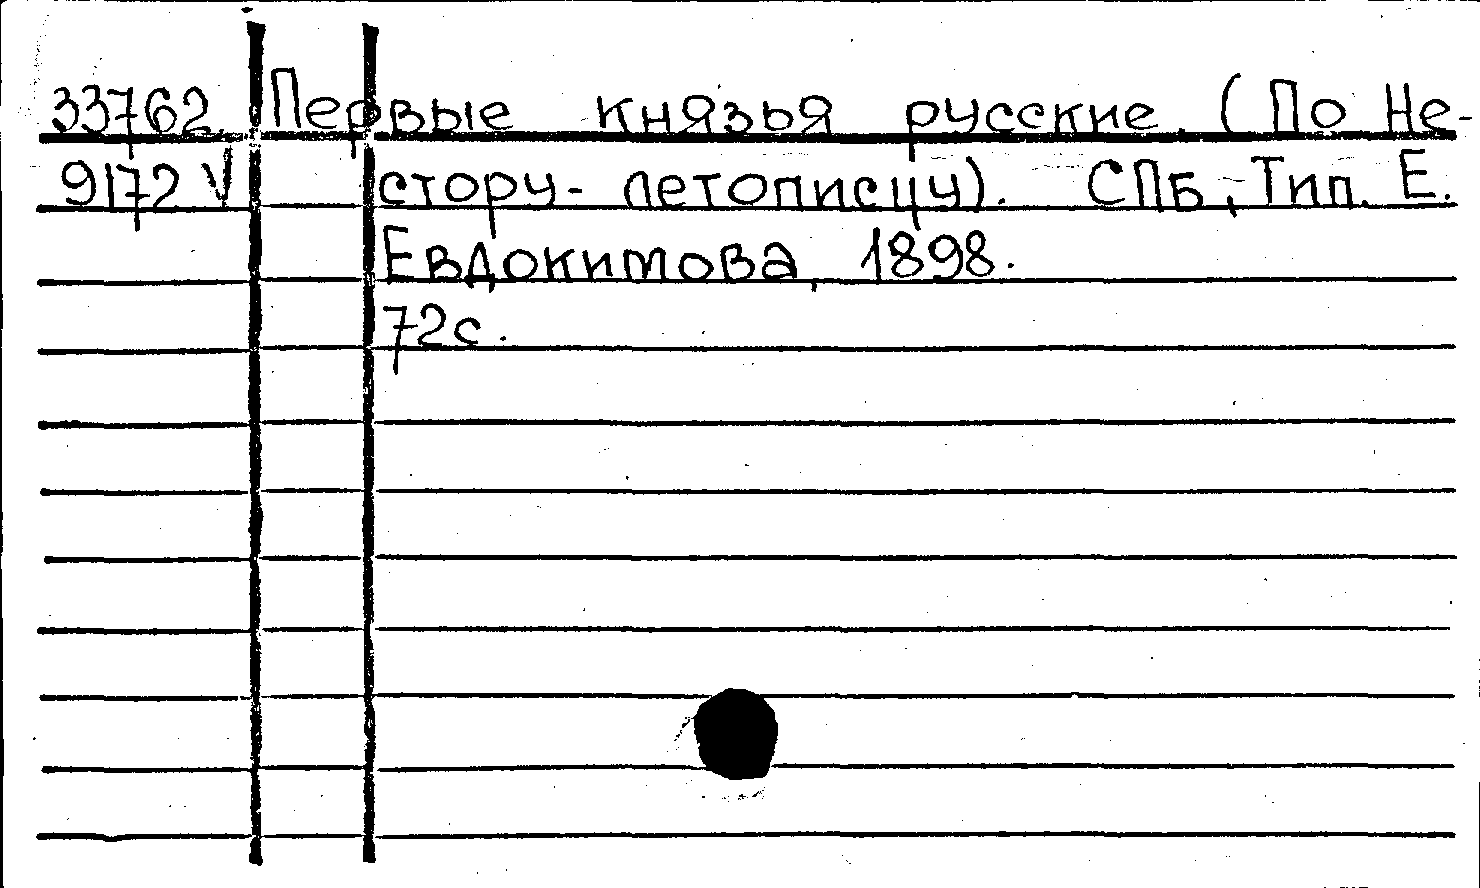 33762. Первые князья русские. (По Не-
9172 V стору-летописцу). СПб, Тип. Е.
Евдокимова, 1898.
72с.